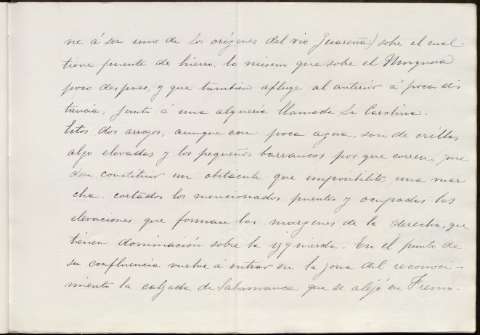 ne á ser uno de los orígenes del rio Guareña) sobre el cual
tiene puente de hierro, lo mismo que sobre el
poco despues, y que tambien afluye al anterior á poca dis
tancia, junto á una alquería llamada La Carolina.
Estos dos arroyos, aunque con poca agua, son de orillas
algo elevadas y los pequeños barrancos por que corren, pue
den constituir un obstáculo que imposibilite una mar
cha. cortados los mencionados puentes y ocupadas las
elevaciones que forman las margenes de la derecha, que
tienen dominación sobre la izquierda. En el punto de
su confluencia vuelve á entrar en la zona del reconoci-
miento la calzada de Salamanca que se alejó en Fresno.